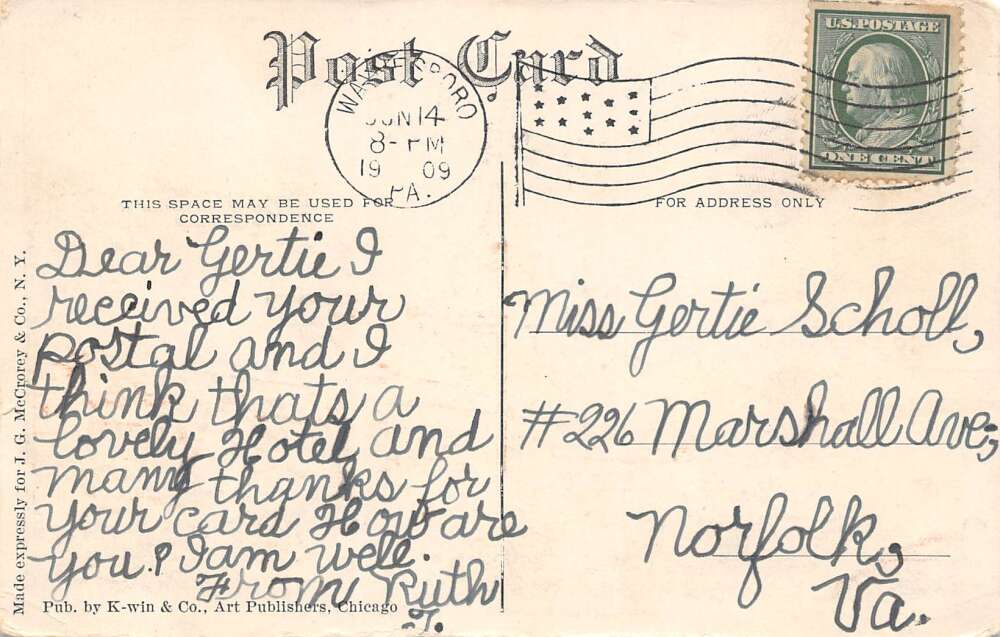 Post Card
U.S. POSTAGE
ONE CENT
JUN 14
8- PM
19 09
PA.
THIS SPACE MAY BE USED FOR
CORRESPONDENCE
FOR ADDRESS ONLY
Dear Gertie I
received your
postal and I
think thats a
lovely Hotel and
many thanks for
your card How are
you? I am well.
From Ruth
T.
Miss Gertie Scholl,
#226 Marshall Ave;
Norfolk,
Va.
Made expressly for J. G. McCrorey & Co., N. Y.
Pub. by K-win & Co., Art Publishers, Chicago